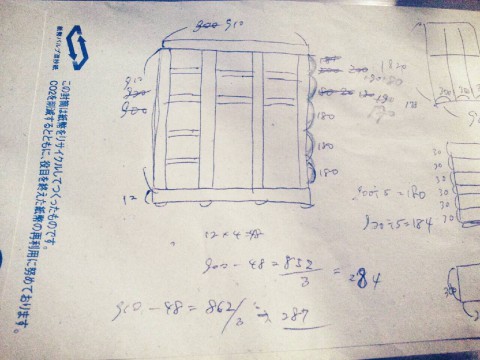 紙幣パルプ混抄紙
この封筒は紙幣をリサイクルしてつくったものです。
CO2を削減するとともに、役目を終えた紙幣の再利用に努めております。
900 910
910
900
12
180
180
180
180
900÷5=180
920÷5=184
30
30
30
30
30
12×4=48
900-48=852/3=284
910-48=862/3≒287